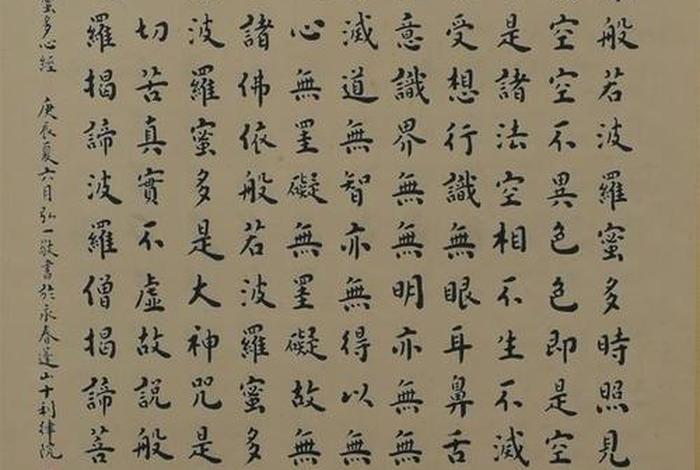 般若波羅蜜多時照見
空空不異色色即是空
是諸法空相不生不滅
受想行識無眼耳鼻舌
意識界無無明亦無無
滅道無智亦無得以無
心無罣礙無罣礙故無
諸佛依般若波羅蜜多
波羅蜜多是大神咒是
切苦真實不虛故說般
羅揭諦波羅僧揭諦菩
蜜多心經 庚辰夏六月弘一敬書於永春蓬山十利律院